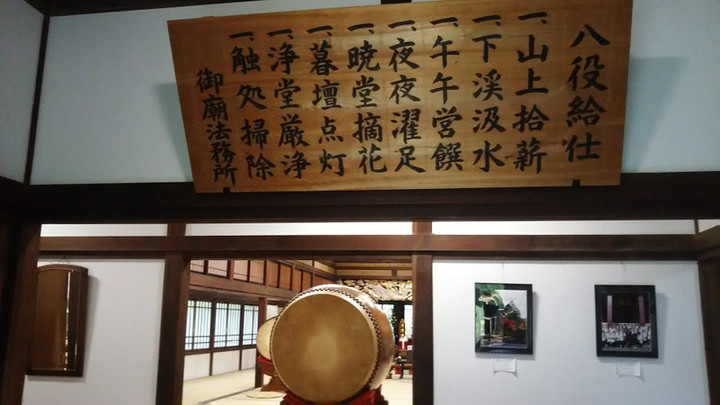 八役給仕
一、山上拾薪
一、下渓汲水
一、午午営饌
一、夜夜濯足
一、暁堂摘花
一、暮壇点灯
一、浄堂厳浄
一、触処掃除
御廟法務所